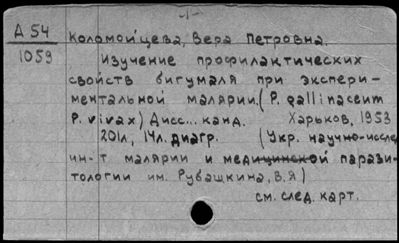 -1-
А 54
1059
Коломойцева, Вера Петровна.
Изучение профилактических
свойств бигумаля при экспери-
ментальной малярии. (P. gallinaceum
P. vivax) Дисс... канд. Харьков, 1953
201л, 14л. диагр. (Укр. научно-исслед
ин-т малярии и медицинской парази-
тологии им. Рубашкина, В.Я)
см. след. карт.